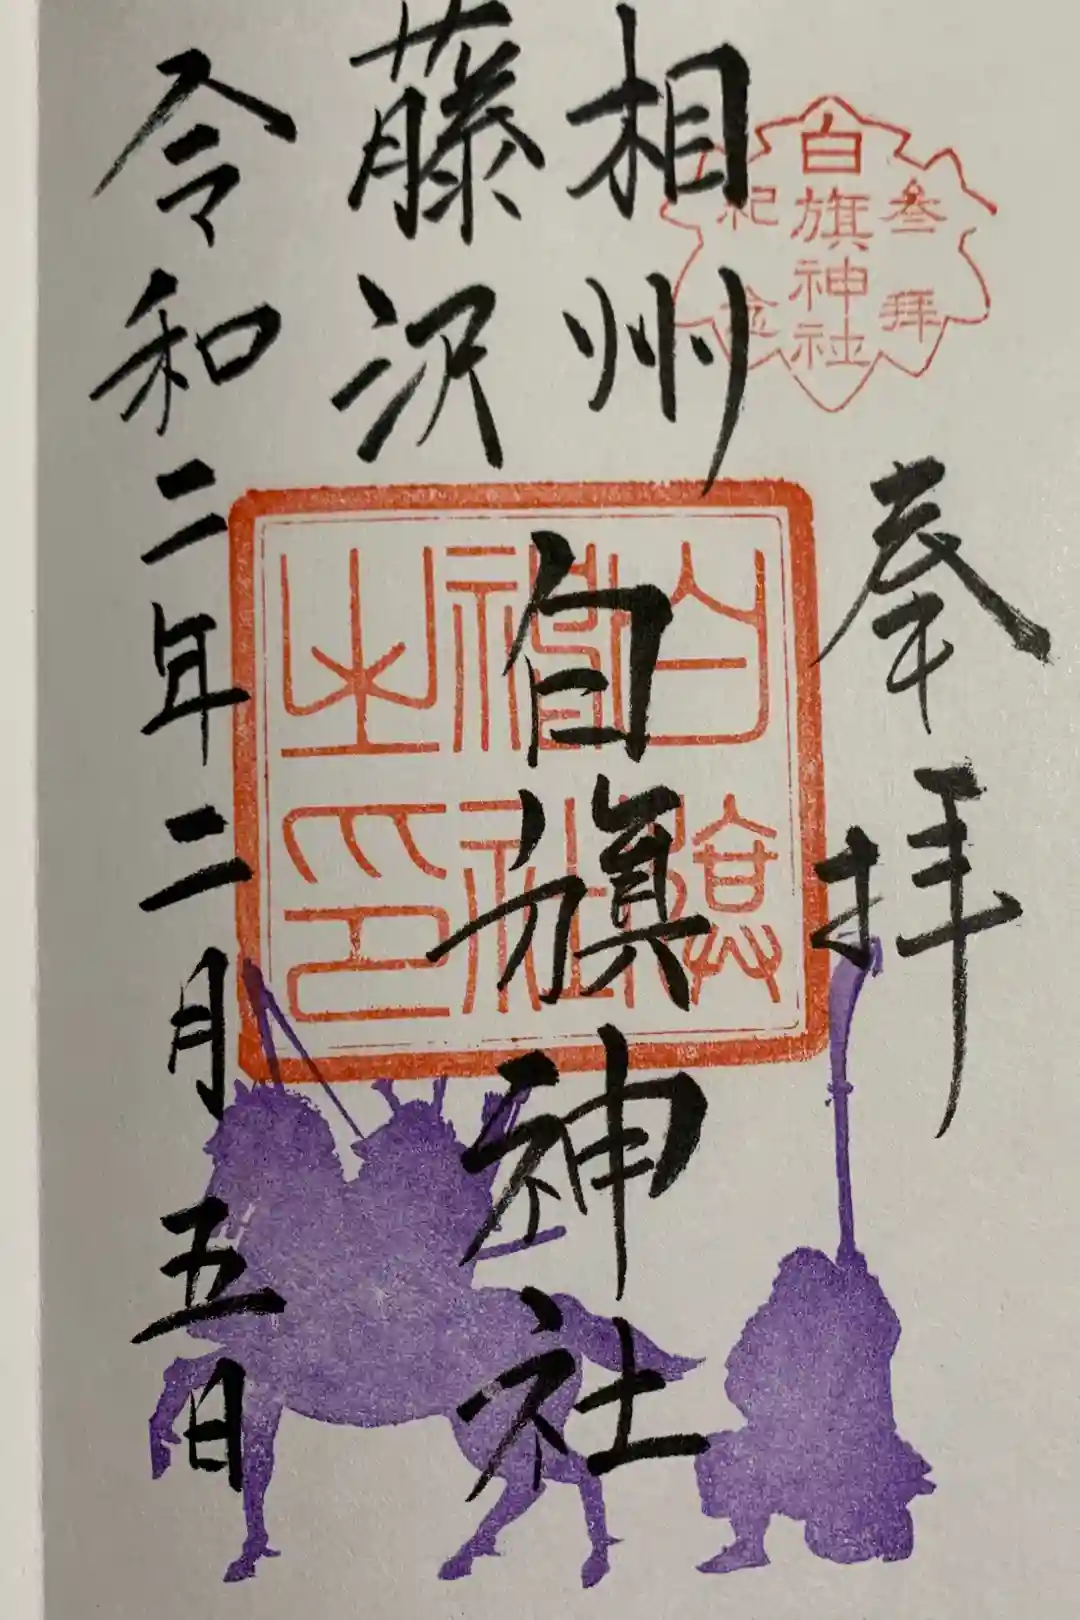 参拝
白旗神社
紀念
奉拝
相州
藤沢
白旗神社
白旗
神社
之印
令和二年二月五日